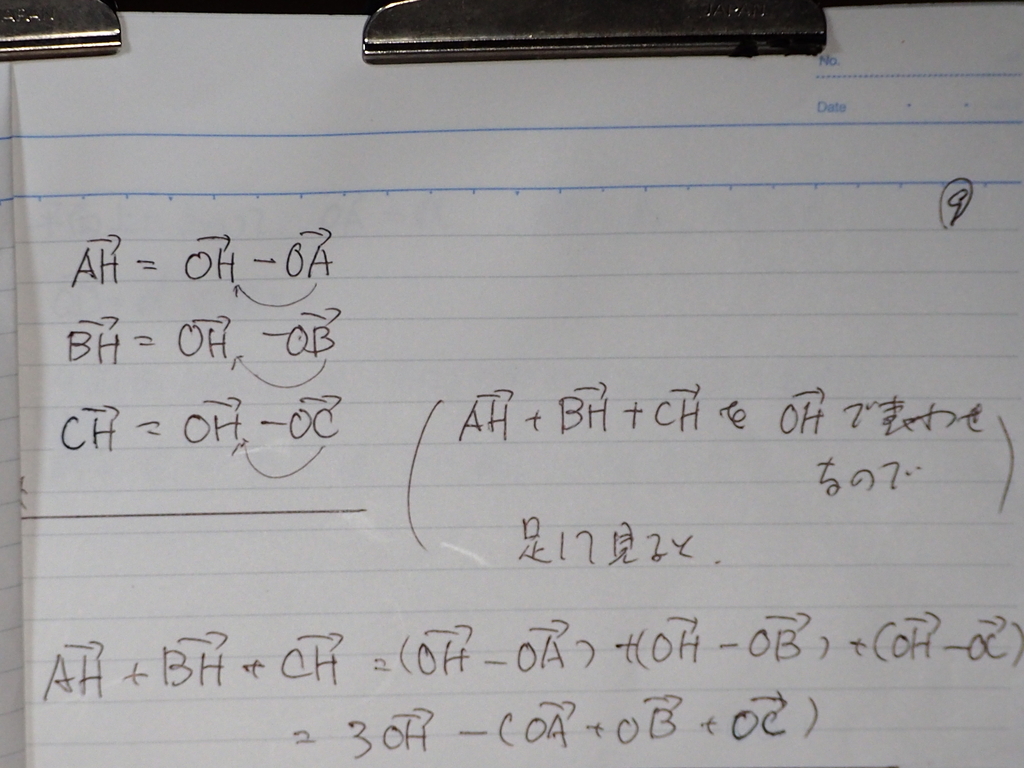 JAPAN
No.
Date
9
AH→ = OH→ - OA→
BH→ = OH→ - OB→
CH→ = OH→ - OC→
(AH→ + BH→ + CH→ を OH→ で表わせ
るので)
足して見ると.
AH→ + BH→ + CH→ = (OH→ - OA→) + (OH→ - OB→) + (OH→ - OC→)
= 3OH→ - (OA→ + OB→ + OC→)